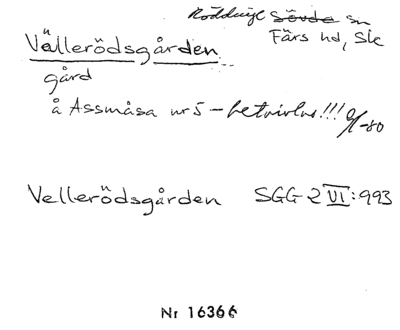 Röddinge Sövde sn
Färs hd, Sk
Vällerödsgården
gård
å Assmåsa nr 5 – betvivlas!!! -80
Vellerödsgården SGG 2 VI:993
Nr 16366